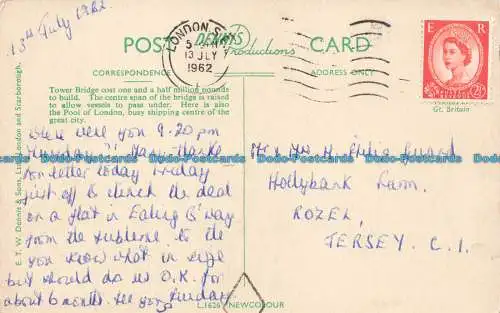 13th July 1962
POST DENNIS Productions CARD
LONDON S.W.1
13 JLY
1962
E R
2½D
Gt. Britain
CORRESPONDENCE
ADDRESS ONLY
Tower Bridge cost one and a half million pounds
to build. The centre span of the bridge is raised
to allow vessels to pass under. Here is also
the Pool of London, busy shipping centre of the
great city.
E. T. W. Dennis & Sons, Ltd., London and Scarborough.
were you 9.20 pm
Many thanks
for letter today Friday
just off to clinch the deal
on a flat in Ealing B'way
from the
you know what in size
but should do us O.K. for
about 6 months. See you Sunday
Hollybank Farm,
ROZEL,
JERSEY. C.I.
L.1626 NEWCOLOUR
Dodo-Postcards
Dodo-Postcards
Dodo-Postcards